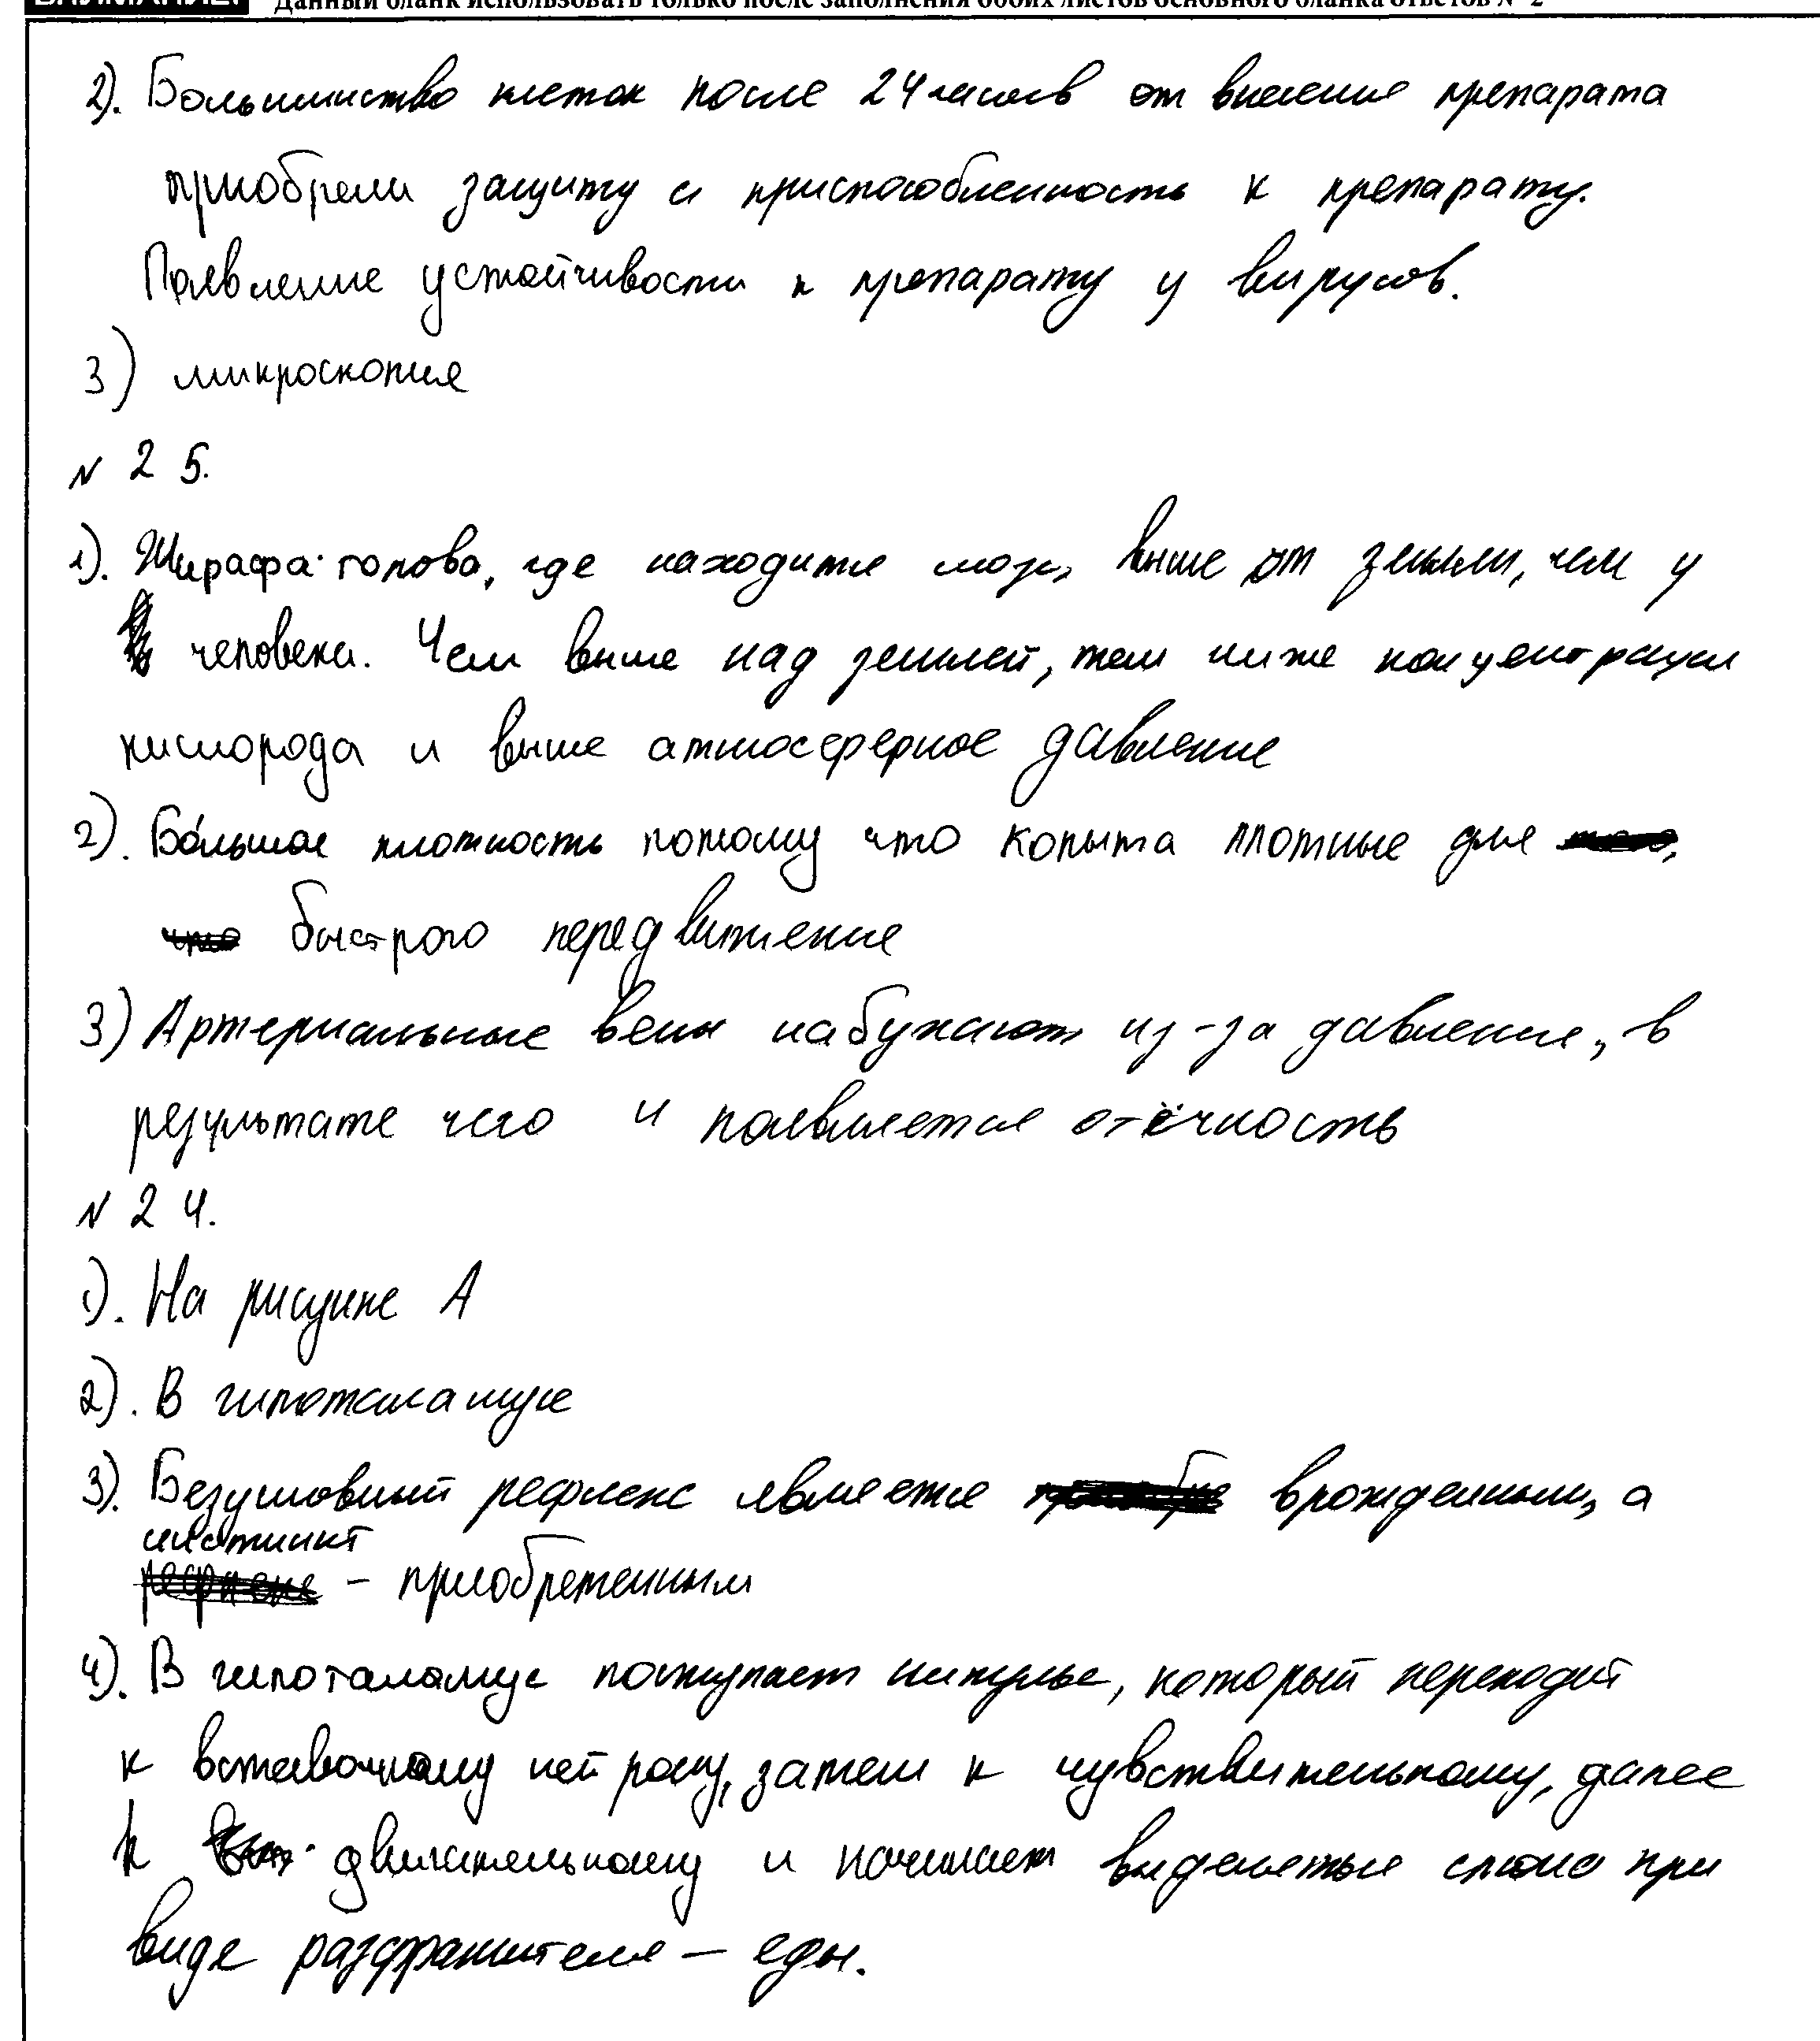 Данный бланк использовать только после заполнения обоих листов основного бланка ответов № 2
2). Большинство клеток после 24 часов от внесения препарата
приобрели защиту и приспособленность к препарату.
Появление устойчивости к препарату у вирусов.
3) микроскопия
N 25.
1). Жирафа голова, где находится мозг, выше от земли, чем у
человека. Чем выше над землей, тем ниже концентрация
кислорода и выше атмосферное давление
2). Бо́льшая плотность потому что копыта плотные для
быстрого передвижения
3) Артериальные вены набухают из-за давления, в
результате чего и появляется отёчность
N 24.
1). На рисунке А
2). В гипоталамусе
3). Безусловный рефлекс является врожденным, а
инстинкт
– приобретенным
4). В гипоталамус поступает импульс, который переходит
к вставочному нейрону, затем к чувствительному, далее
к двигательному и начинает выделяться слюна при
виде раздражителя – еды.